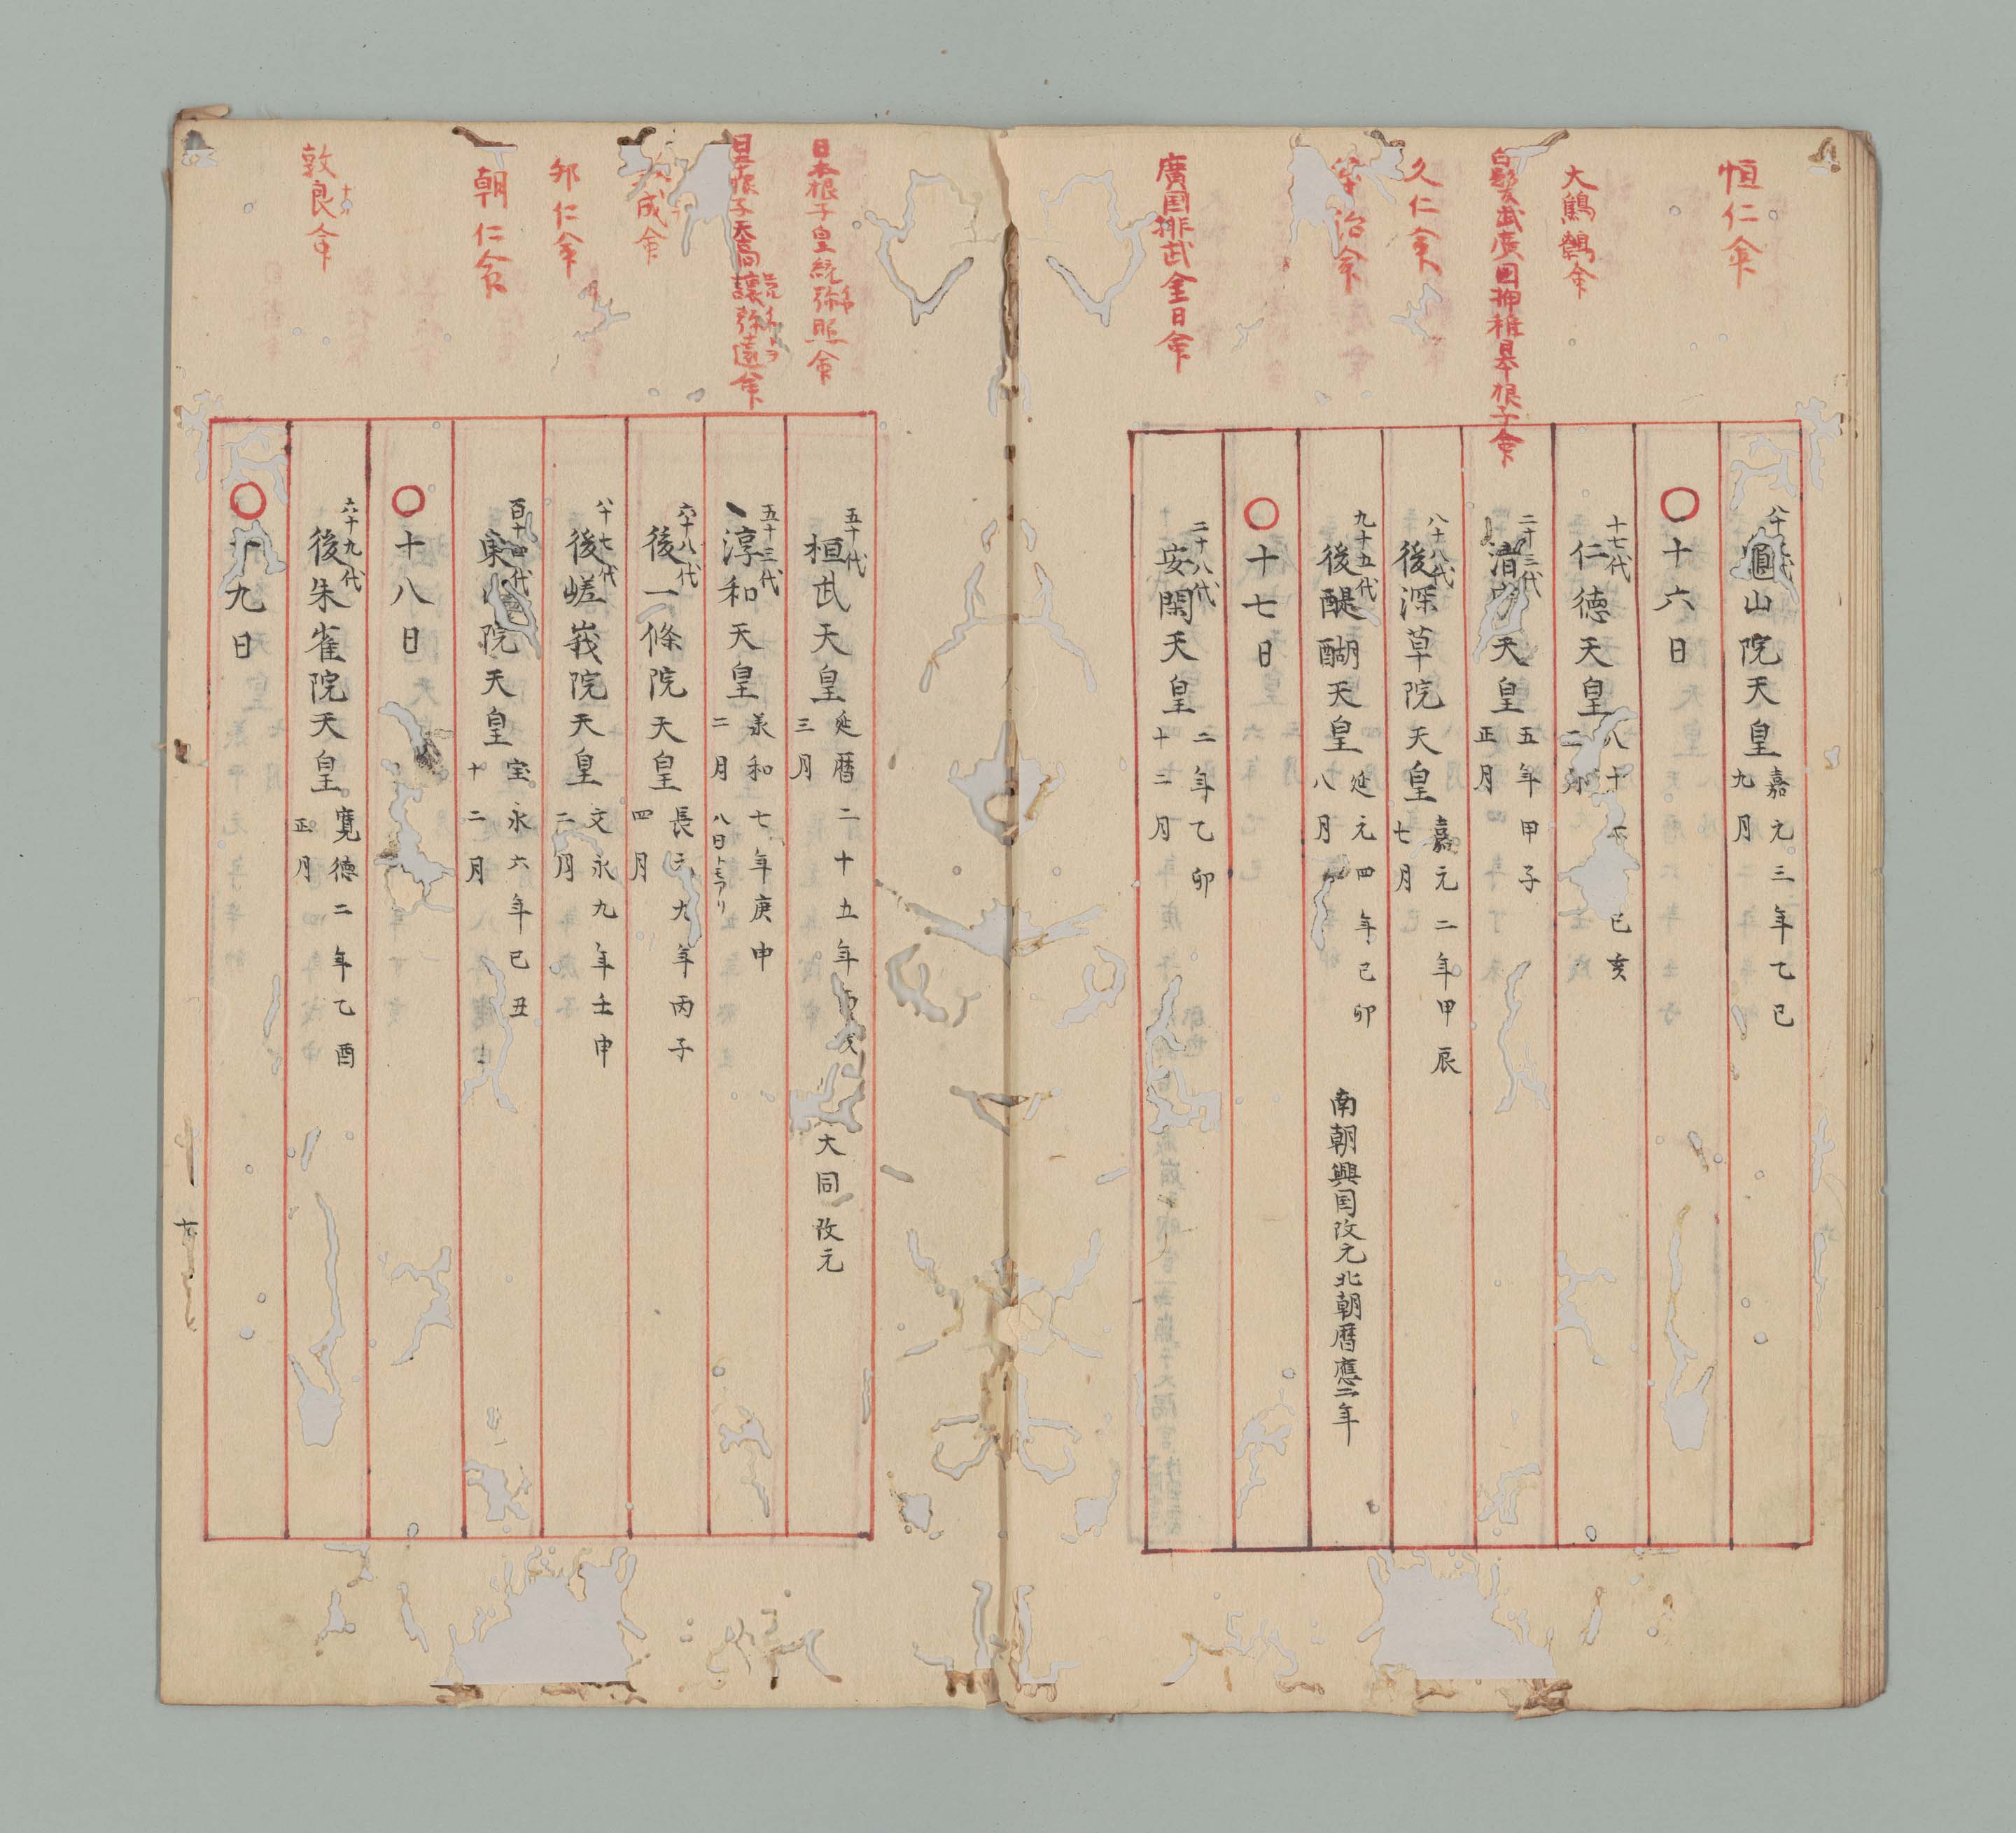 恒仁命
山院天皇 嘉元三年乙巳
九月
○十六日
大鷦鷯命
十七代
仁徳天皇 八十
己亥
白髪武廣国押稚日本根子命
二十三代
清寧天皇 五年甲子
正月
久仁命
八十八代
後深草院天皇 嘉元二年甲辰
七月
治命
九十五代
後醍醐天皇 延元四年己卯 南朝興国改元北朝暦應二年
八月
○十七日
廣国排武金日命
二十八代
安閑天皇 二年乙卯
十二月
日本根子皇統弥照命
五十代
桓武天皇 延暦二十五年 大同改元
三月
日本根子天高讓弥遠命
五十三代
淳和天皇 承和七年庚申
二月 八日トモアリ
成命
六十八代
後一條院天皇 長元九年丙子
四月
邦仁命
八十七代
後嵯峩院天皇 文永九年壬申
二月
朝仁命
百十四代
東院天皇 宝永六年己丑
十二月
○十八日
敦良命
六十九代
後朱雀院天皇 寛徳二年乙酉
正月
○十九日